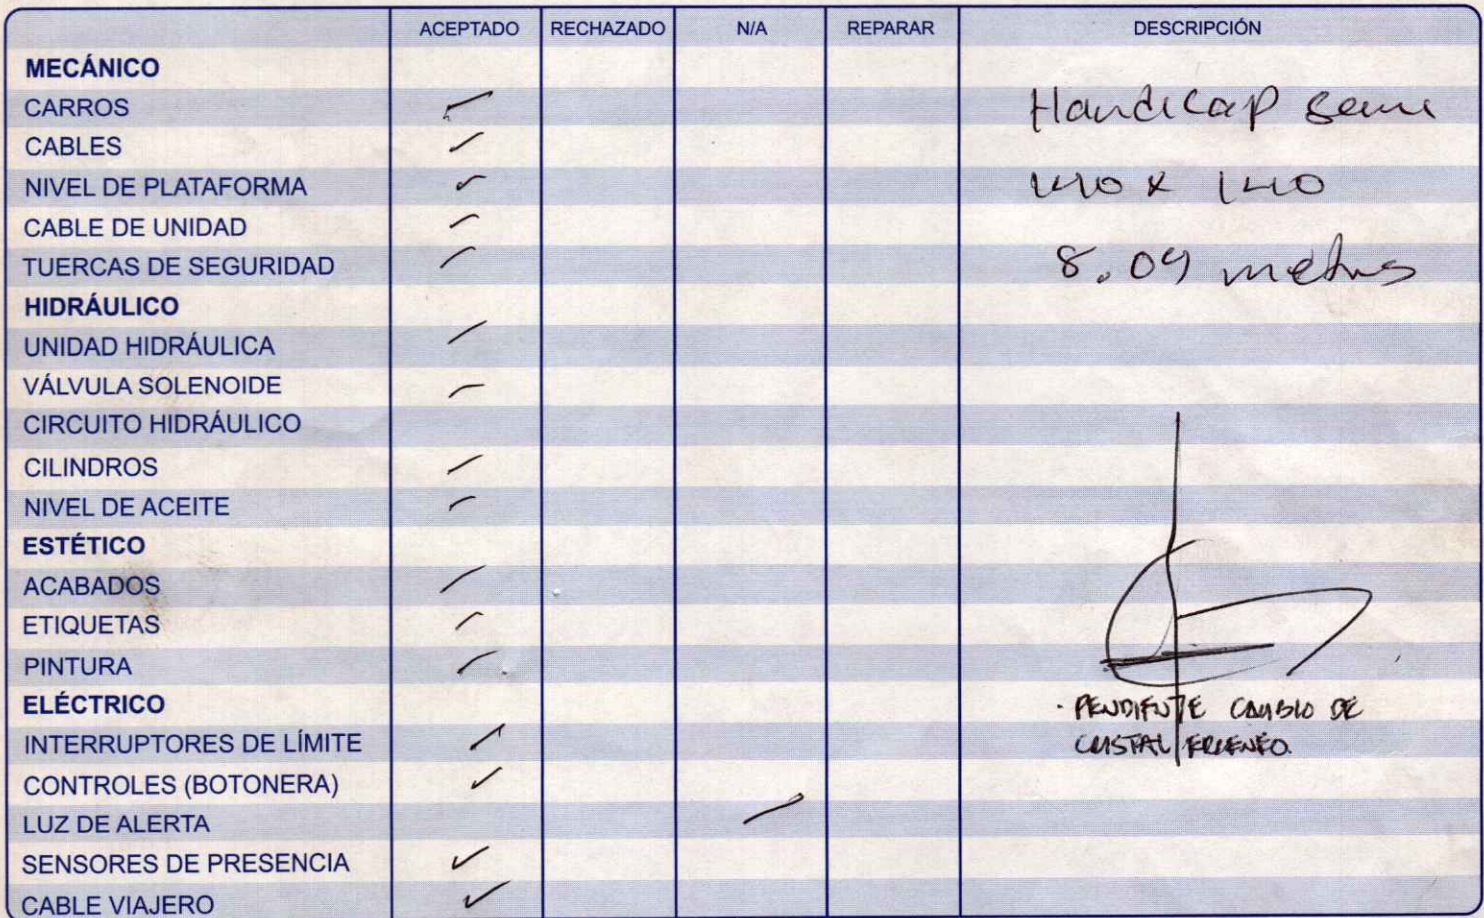 ACEPTADO RECHAZADO N/A REPARAR DESCRIPCIÓN
MECÁNICO
CARROS ✓ Handicap semi
CABLES ✓
NIVEL DE PLATAFORMA ✓ 140 x 140
CABLE DE UNIDAD ✓
TUERCAS DE SEGURIDAD ✓ 8.09 metros
HIDRÁULICO
UNIDAD HIDRÁULICA ✓
VÁLVULA SOLENOIDE ✓
CIRCUITO HIDRÁULICO
CILINDROS ✓
NIVEL DE ACEITE ✓
ESTÉTICO
ACABADOS ✓
ETIQUETAS ✓
PINTURA ✓
ELÉCTRICO · PENDIENTE CAMBIO DE
INTERRUPTORES DE LÍMITE ✓ CRISTAL
CONTROLES (BOTONERA) ✓
LUZ DE ALERTA ✓
SENSORES DE PRESENCIA ✓
CABLE VIAJERO ✓